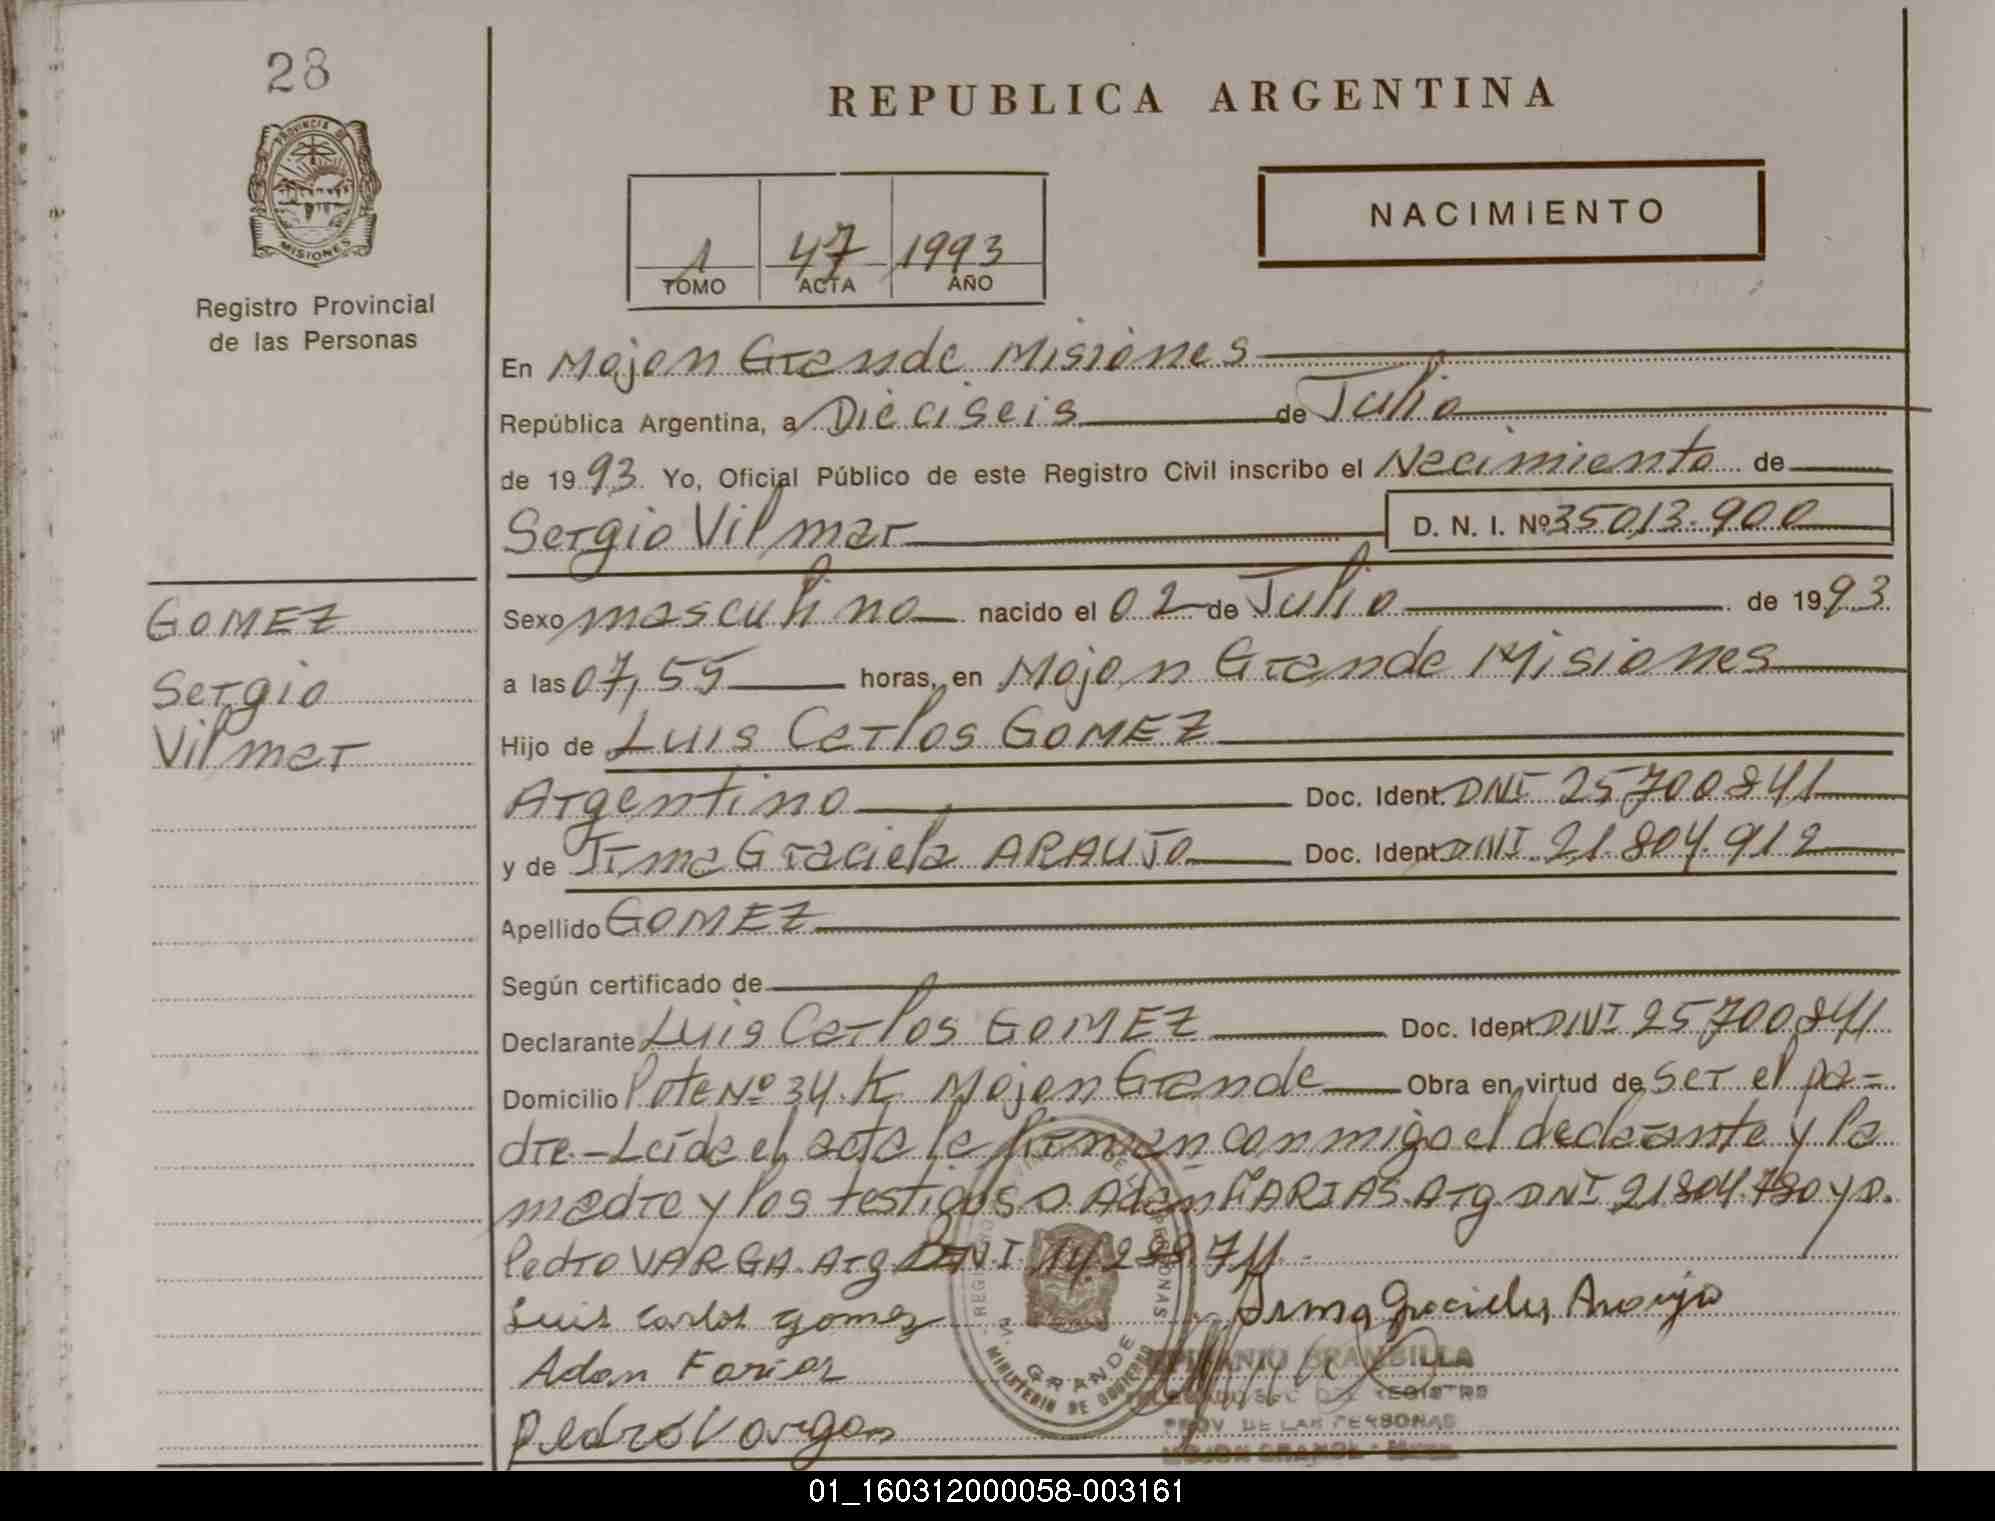 28
REPUBLICA ARGENTINA
PROVINCIA DE
MISIONES
NACIMIENTO
1 47 1993
TOMO ACTA AÑO
Registro Provincial
de las Personas
En Mojon Grande Misiones
República Argentina, a Dieciseis de Julio
de 1993. Yo, Oficial Público de este Registro Civil inscribo el Nacimiento de
Sergio Vilmar D. N. I. Nº 35013.900
GOMEZ
Sergio
Vilmar
Sexo masculino nacido el 02 de Julio de 1993.
a las 07,55 horas, en Mojon Grande Misiones
Hijo de Luis Carlos GOMEZ
Argentino Doc. Ident. DNI 25700841
y de Irma Graciela ARAUJO Doc. Ident. DNI 21.804.912
Apellido GOMEZ
Según certificado de
Declarante Luis Carlos GOMEZ Doc. Ident. DNI 25700841
Domicilio lote Nº 34.K Mojon Grande Obra en virtud de ser el pa=
dre.-Leída el acta la firman conmigo el declarante y la
madre y los testigos D. Adan FARIAS Arg DNI 21804.780 y D.
Pedro VARGA Arg DNI 14.299.711.-
Luis Carlos gomez Irma Graciela Araujo
Adan Farias
Pedro Vargas
GRANDE
MINISTERIO DE GOBIERNO
BRAMBILLA
PROV. DE LAS PERSONAS
MOJON GRANDE
01_160312000058-003161